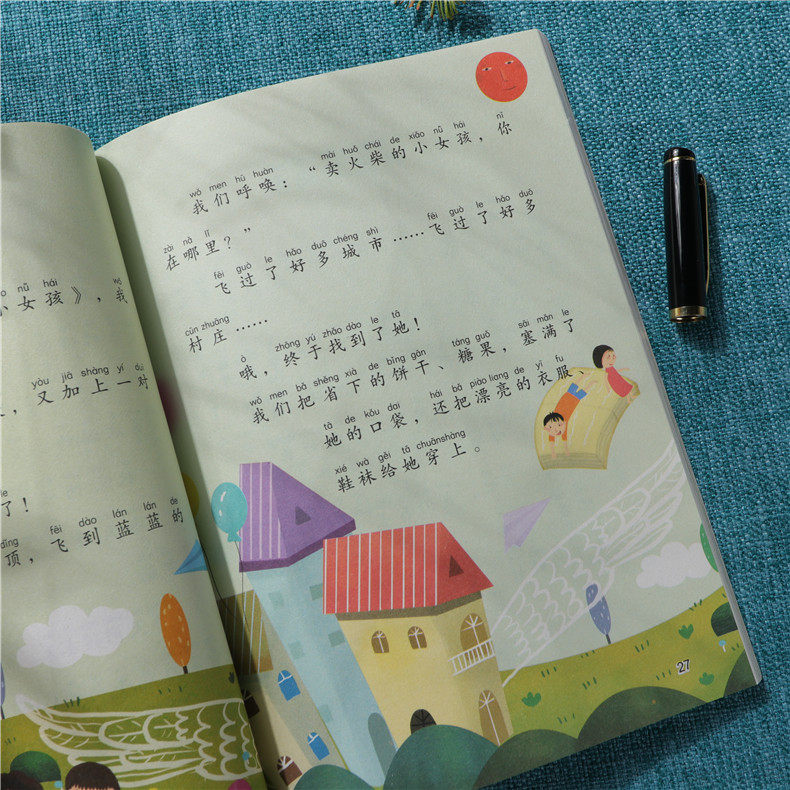 小女孩》，我
yòu jiā shàng yí duì
又加上一对
了！
dǐng fēi dào lán lán de
顶，飞到蓝蓝的
wǒ men hū huàn mài huǒ chái de xiǎo nǚ hái nǐ
我们呼唤：“卖火柴的小女孩，你
zài nǎ lǐ
在哪里？”
fēi guò le hǎo duō chéng shì fēi guò le hǎo duō
飞过了好多城市……飞过了好多
cūn zhuāng
村庄……
ò zhōng yú zhǎo dào le tā
哦，终于找到了她！
wǒ men bǎ shěng xià de bǐng gān táng guǒ sāi mǎn le
我们把省下的饼干、糖果，塞满了
tā de kǒu dai hái bǎ piào liang de yī fu
她的口袋，还把漂亮的衣服、
xié wà gěi tā chuān shàng
鞋袜给她穿上。
27